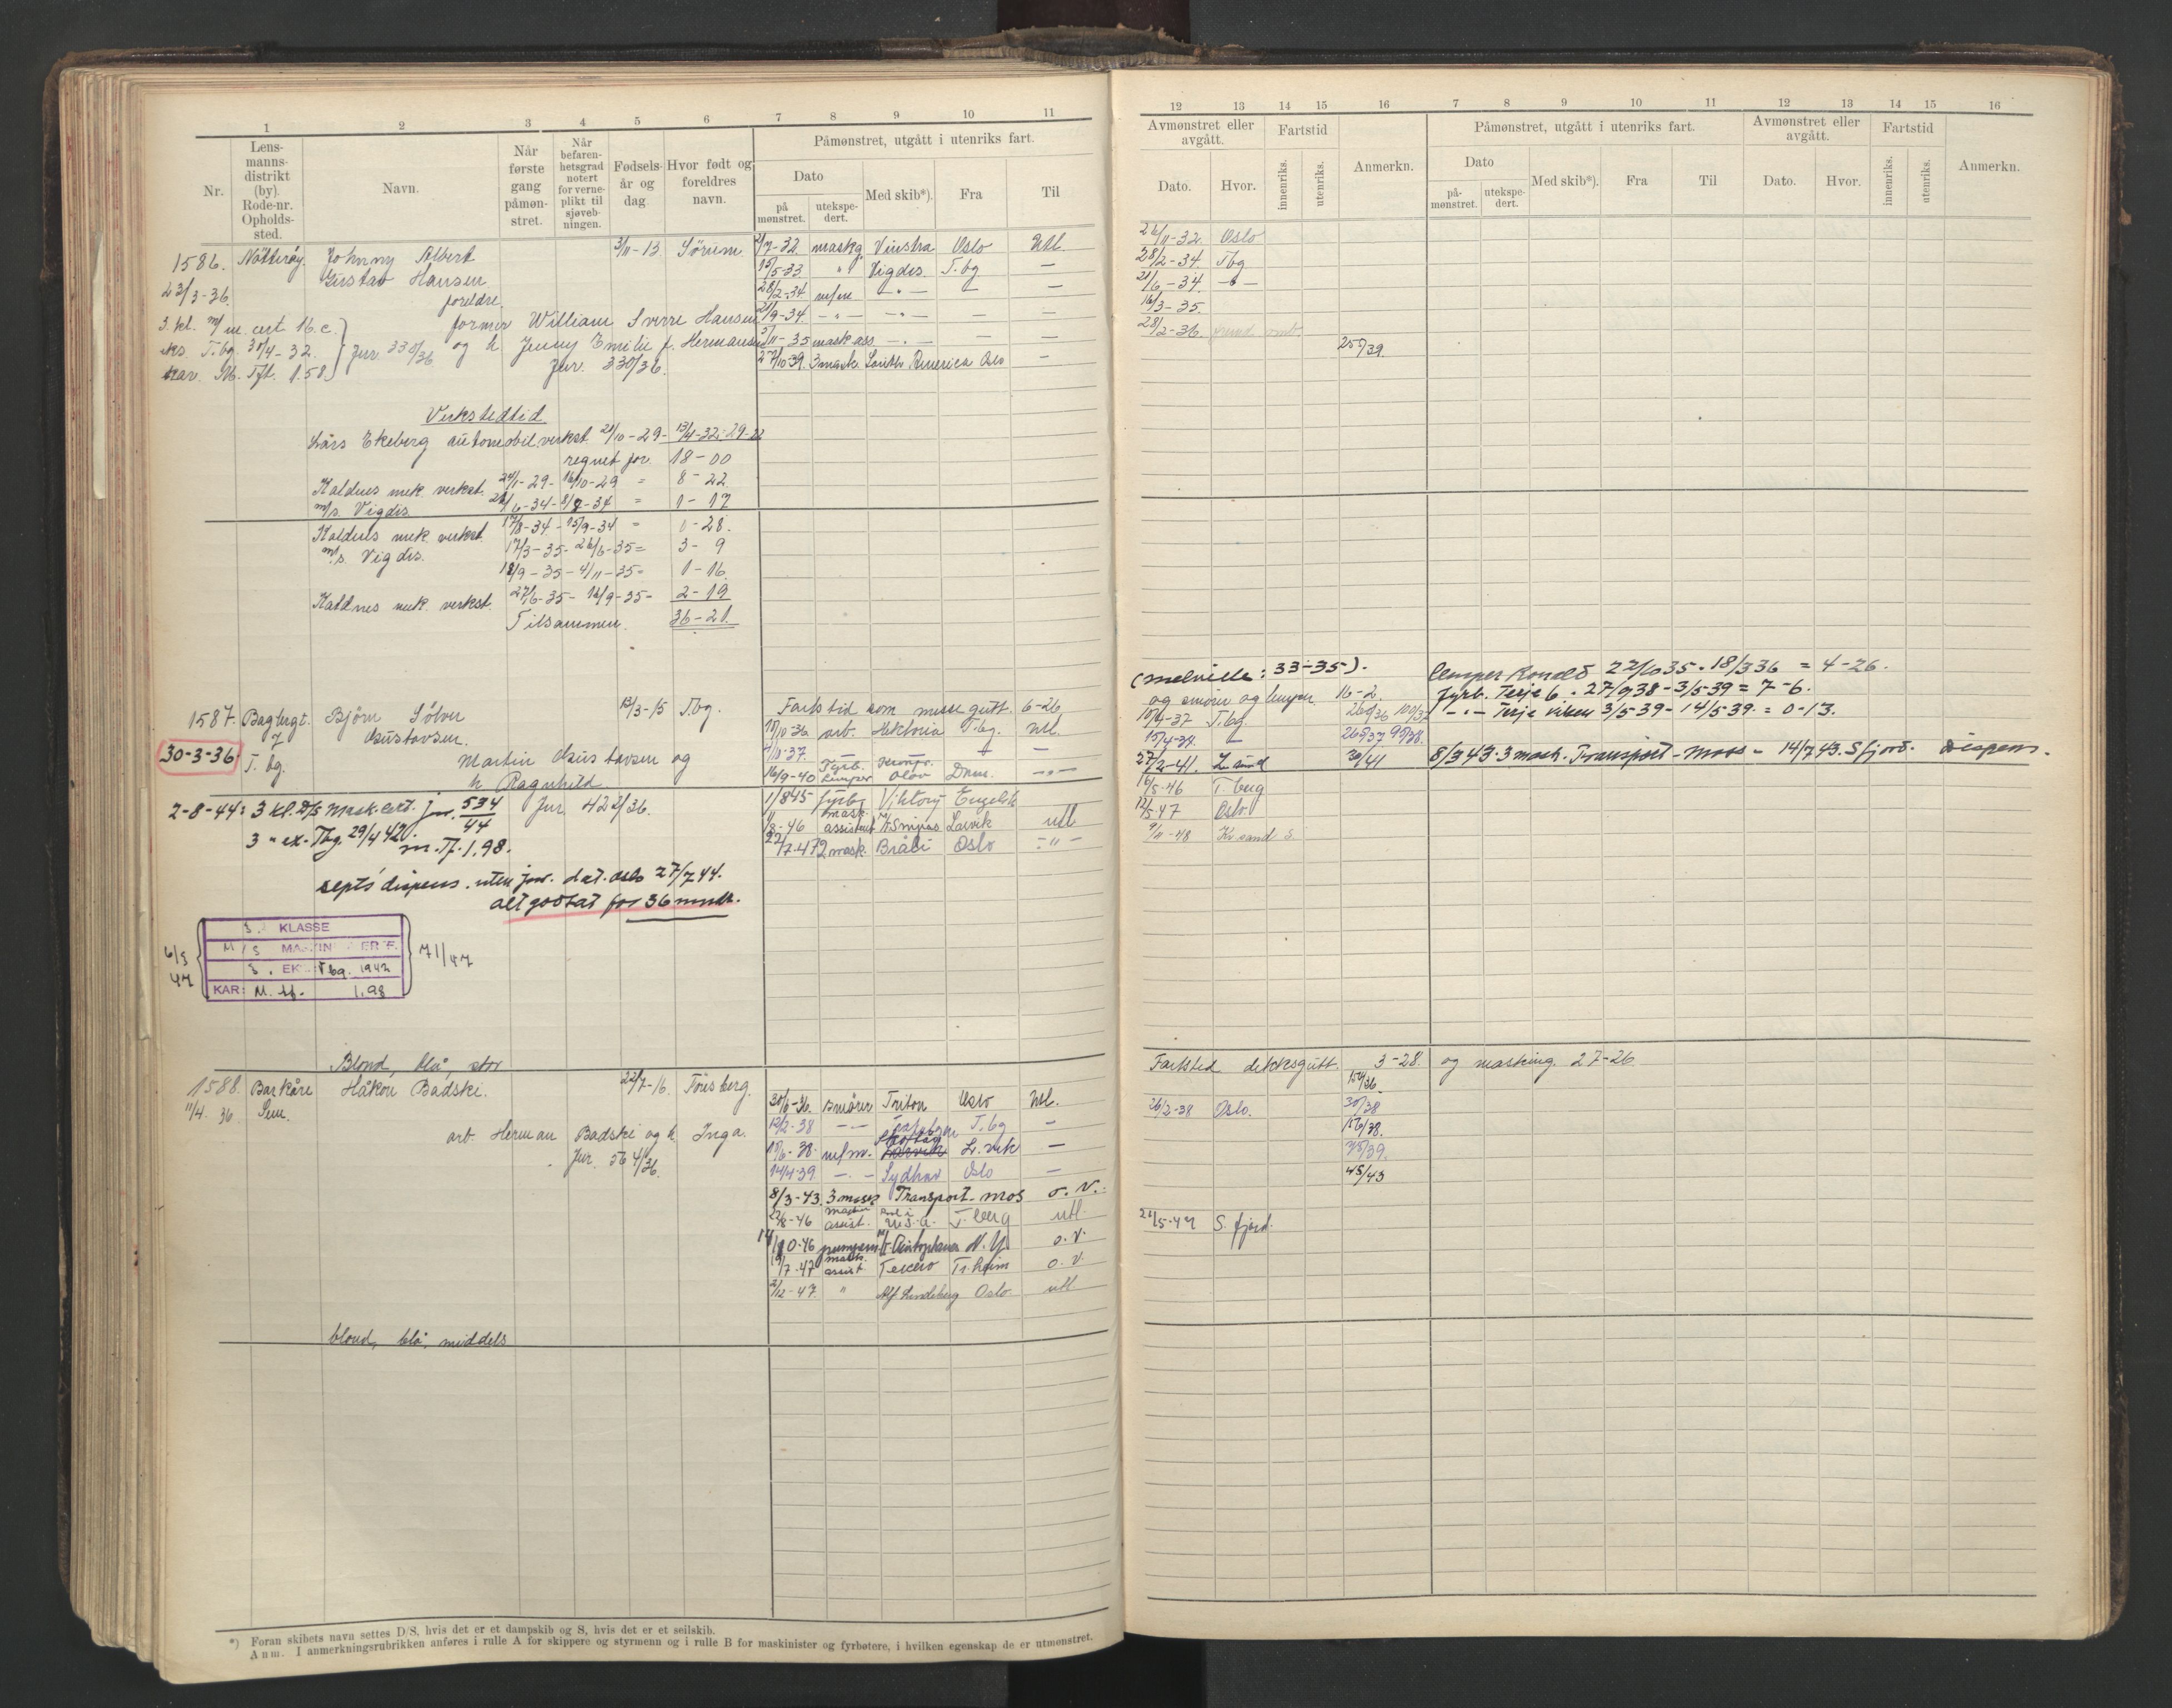 1 2 3 4 5 6 7 8 9 10 11
Nr.
Lens-
manns-
distrikt
(by).
Rode-nr.
Opholds-
sted.
Navn.
Når
første
gang
påmøn-
stret.
Når
befaren-
hetsgrad
notert
for verne-
plikt til
sjøveb-
ningen.
Fødsels-
år og
dag
Hvor født og
foreldres
navn.
Påmønstret, utgått i utenriks fart.
Dato
på-
mønstret.
utekspe-
dert.
Med skib*).
Fra
Til
1586. Nötteröy. Johnny Albert 3/11-13 Sörum 2/7-32 maskg. Vinstra Oslo Utl.
23/3-36. Gustav Hansen 15/5-33 " Vigdis. T.bg —
foreldre 28/2-34 m/m —"— — —
3. kl. m/m. cert 16.c. former William Sverre Hansen 21/9-34 —"— —"— — —
eks. T.bg. 30/4-32. Jur 330/36 og h. Jenny Emilie f. Hermansen 5/11-35 mask ass —"— — —
kar. M. Tft. 1.58 Jur. 330/36. 25/10 39. 3 mask. South America Oslo —
Verkstedtid
Lårs Ekeberg automobil.verkst. 21/10-29- 13/4-32: 29-22
regnet for. 18-00
Kaldnes mek. verkst. 24/1-29- 16/10-29 = 8-22
m/s. Vigdis 22/6-34- 8/8-34 = 1-17
Kaldnes mek. verkst. 17/8-34- 15/9-34 = 0-28.
m/s. Vigdis. 17/3-35- 26/6-35= 3- 9
18/9-35- 4/11-35= 1-16.
Kaldnes mek. verkst. 27/6-35- 16/9-35= 2-19
Tilsammen. 36-21.
1587. Bagbergt. Björn Sölver 12/3-15 T.bg. Fartstid som messegutt. 6-26
7 Gustavsen. 15/10-36 arb. Hektoria T.bg. Utl.
30-3-36 T. bg. Martin Gustavsen og 4/10-37. — + —
h. Ragnhild 16/9-40 Fyrb. lemper Kongs. Olav Dram. —"—
2-8-44: 3 kl. D/s mask.cert. jnr. 534/44 Jur 422/36. 1/8 45 fyrb. Viktory Engelsk
3 " ex. Tbg. 29/4 42. m. Tf. 1.98. 1/8-46 mask. assistent Larvik utl
22/7-47 2 mask. Bråbi Oslo —"—
septs dispens. uten jnr. dat. Oslo 27/7 44.
alt godtat for 36 mndr.
6/3 47
3. KLASSE
M/S MASKIN ERTF.
3. EK Tbg. 1942
KAR: M. tf. 1,98
71/47
Blond, blå, stor
1588. Barkåre Håkon Badski. 22/7-16. Tönsberg.
11/4. 36 Sem. 30/6-36. smörer Triton Oslo Utl.
12/2-38 —"— T.bg —
arb. Herman Badski og h. Inga. 15/6-38. m/m. L.vik —
Jur. 564/36. 14/4 39 —"— Sydhav Oslo —
8/3-43. 3 mask Transport - mos o. V.
22/8-46 maskin assist. U.S.A. T. berg utl
10-46 pumpem. Aristophanes N. Y o. v.
7-47 mask. assist. Tekero Tr.heim o. v.
2/12-47. " Alf Lindeberg Oslo utl
blond, blå, middels
*) Foran skibets navn settes D/S, hvis det er et dampskib og S, hvis det er et seilskib.
Anm. I anmerkningsrubrikken anføres i rulle A for skippere og styrmenn og i rulle B for maskinister og fyrbøtere, i hvilken egenskap de er utmønstret.
12 13 14 15 16 7 8 9 10 11 12 13 14 15 16
Avmønstret eller
avgått.
Dato.
Hvor.
Fartstid
innenriks.
utenriks.
Anmerkn.
Påmønstret, utgått i utenriks fart.
Dato
på-
mønstret.
utekspe-
dert.
Med skib*).
Fra
Til
Avmønstret eller
avgått.
Dato.
Hvor.
Fartstid
innenriks.
utenriks.
Anmerkn.
22/11-32 Oslo
28/2-34. Tbg
21/6-34. —"—
16/3-35.
28/2-36.
255/39.
(melville: 33-35). Lemper Ronald 22/10 35 - 18/3 36 = 4-26.
og smörer og lemper 16-2 fyrb. Terje 6. 27/9 38-3/5-39 = 7-6.
10/4-37 T.bg 260/36 100/37 —"— Terje viken 3/5-39-14/5-39. = 0-13.
15/4-34. — 265/37 95/38.
27/2-41. L.sund 30/41 8/3 43. 3 mask. Transport - Moss - 14/7 43. S fjord. Dispens.
16/5-46 T. berg
12/5-47 Oslo
9/11-48 Kr sand S.
Fartstid dekksgutt. 3-28. og masking. 27-26
154/36
26/2-38 Oslo. 30/38
176/38.
75/39.
45/43
21/5-47 S. fjord.